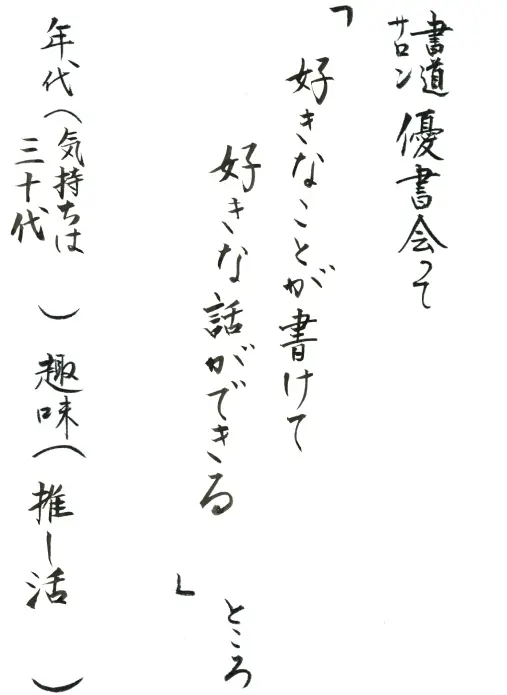 書道サロン 優書会って
「好きなことが書けて
好きな話ができる」ところ
年代（気持ちは三十代）趣味（推し活）